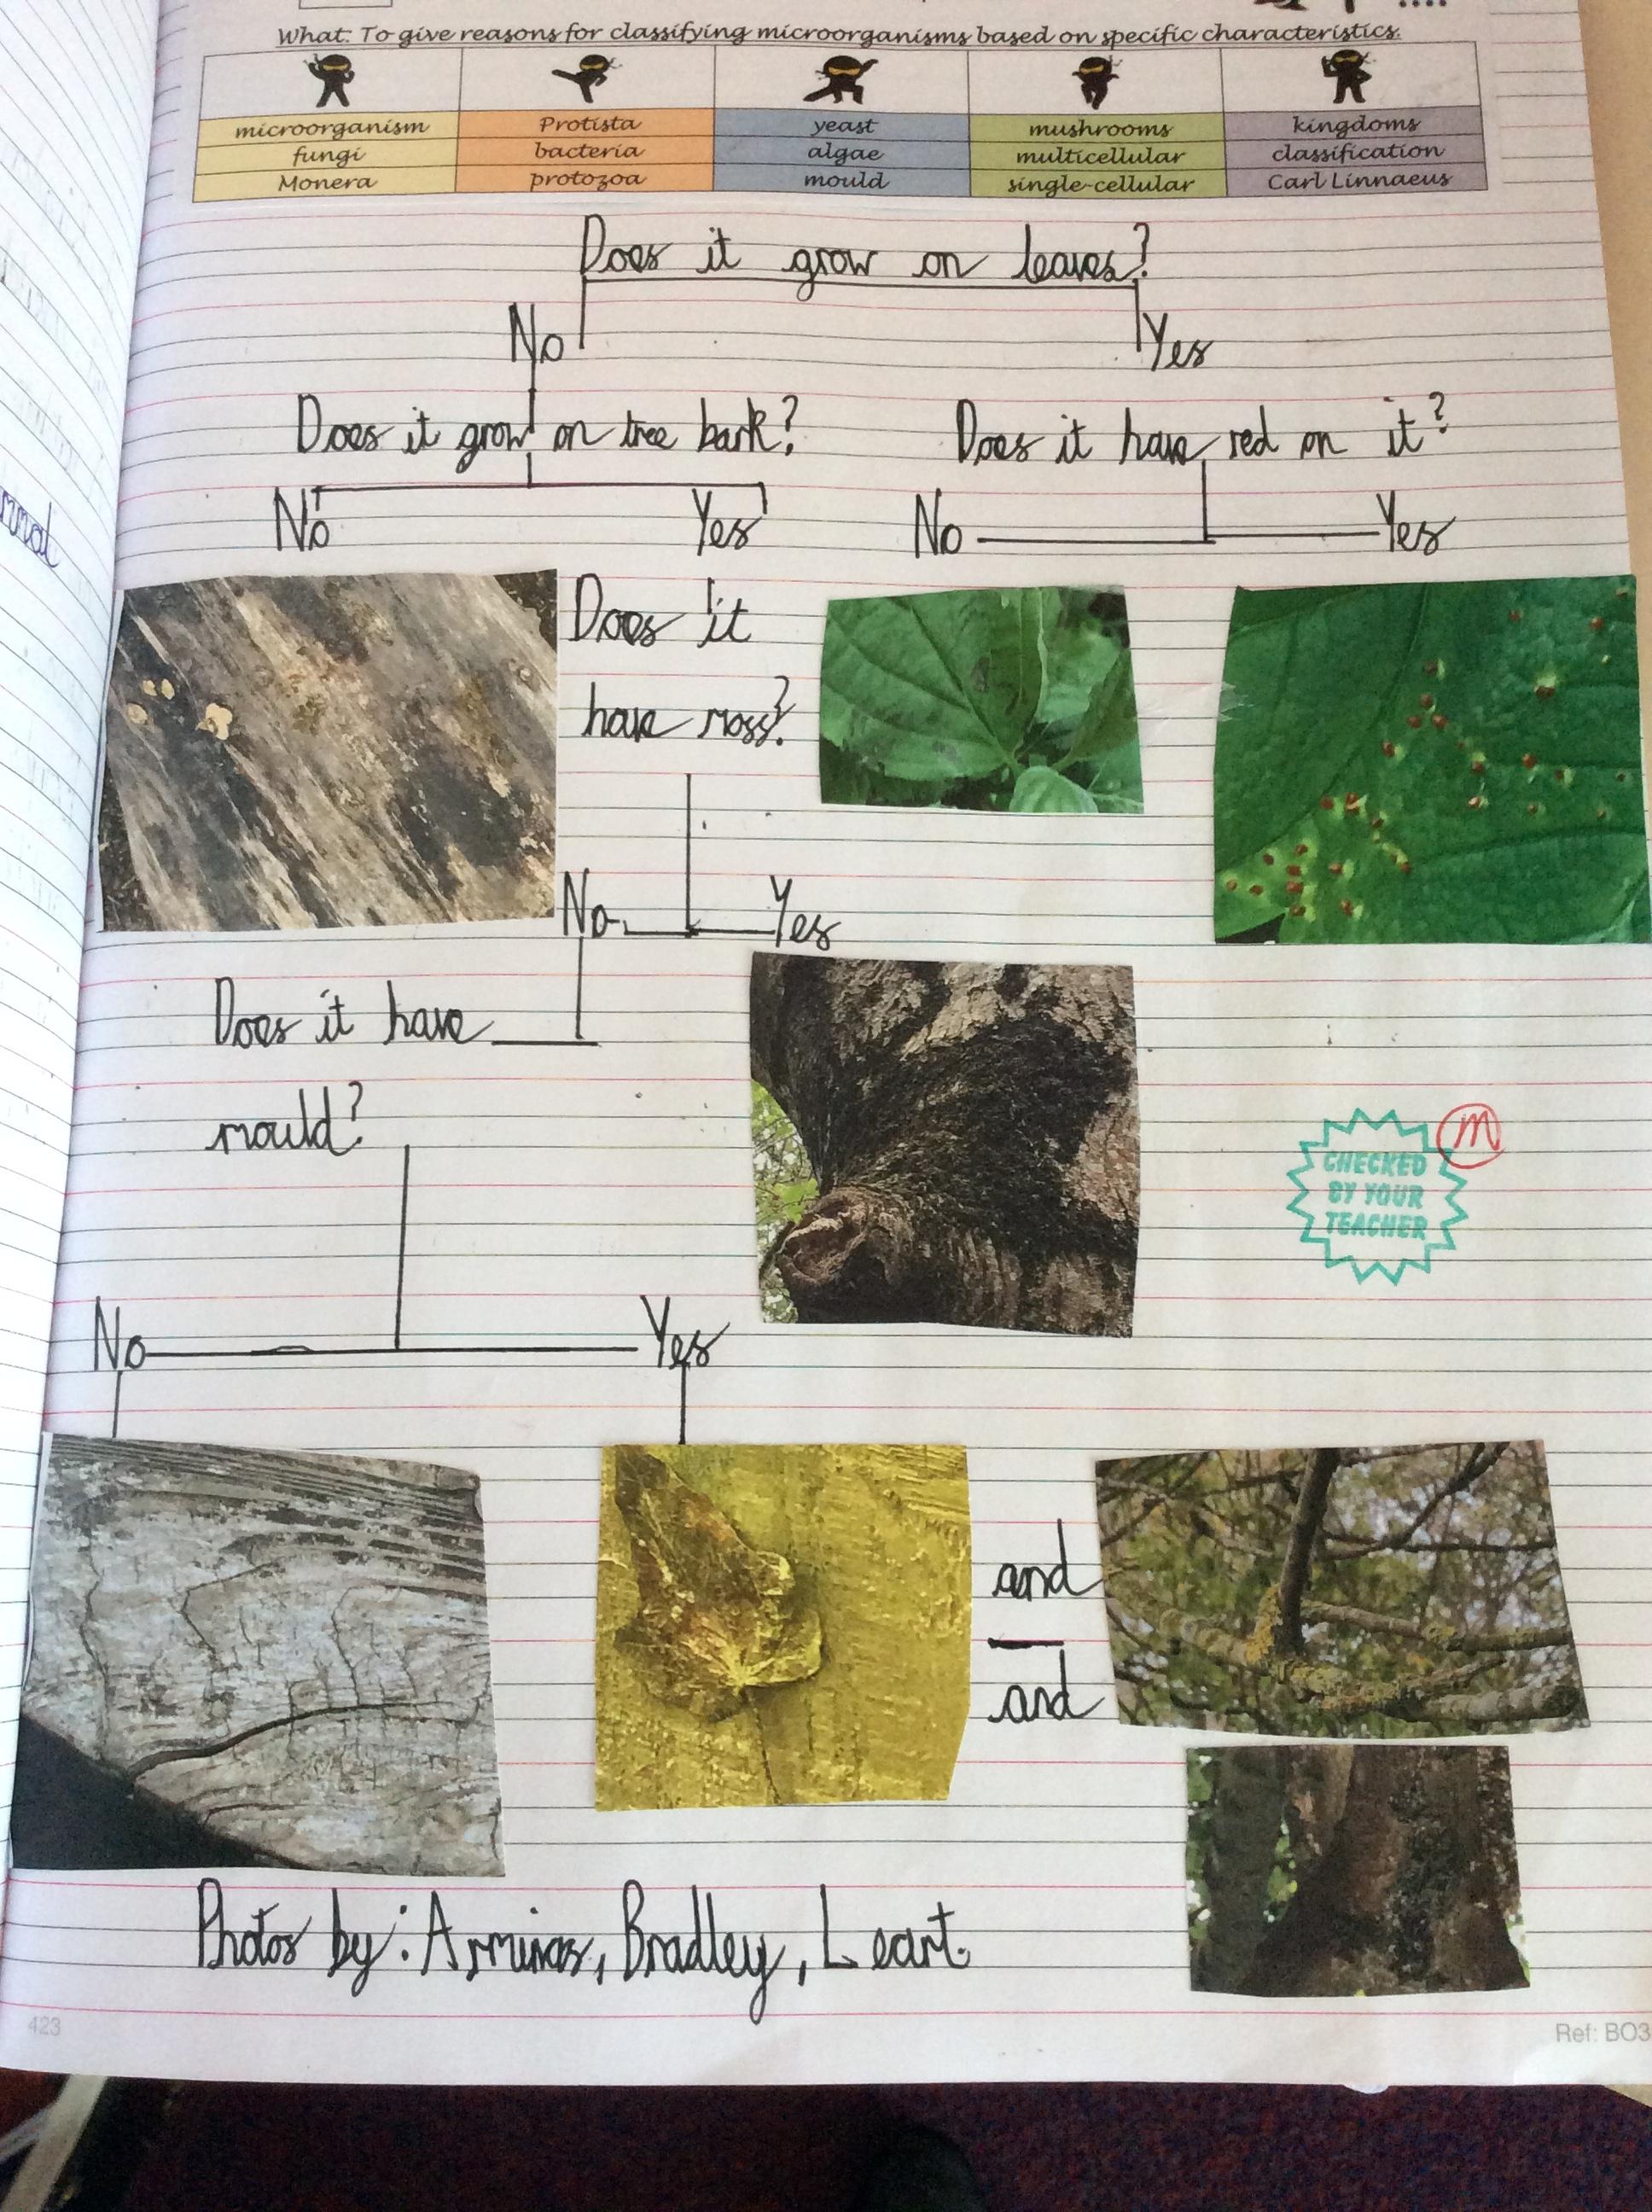 What: To give reasons for classifying microorganisms based on specific characteristics.
microorganism Protista yeast mushrooms kingdoms
fungi bacteria algae multicellular classification
Monera protozoa mould single-cellular Carl Linnaeus
Does it grow on leaves?
No Yes
Does it grow on tree bark? Does it have red on it?
No Yes No Yes
Does it
have moss?
No Yes
Does it have
mould?
CHECKED
BY YOUR
TEACHER
M
No Yes
and
and
Photos by: Arminas, Bradley, Leart.
423 Ref: BO3